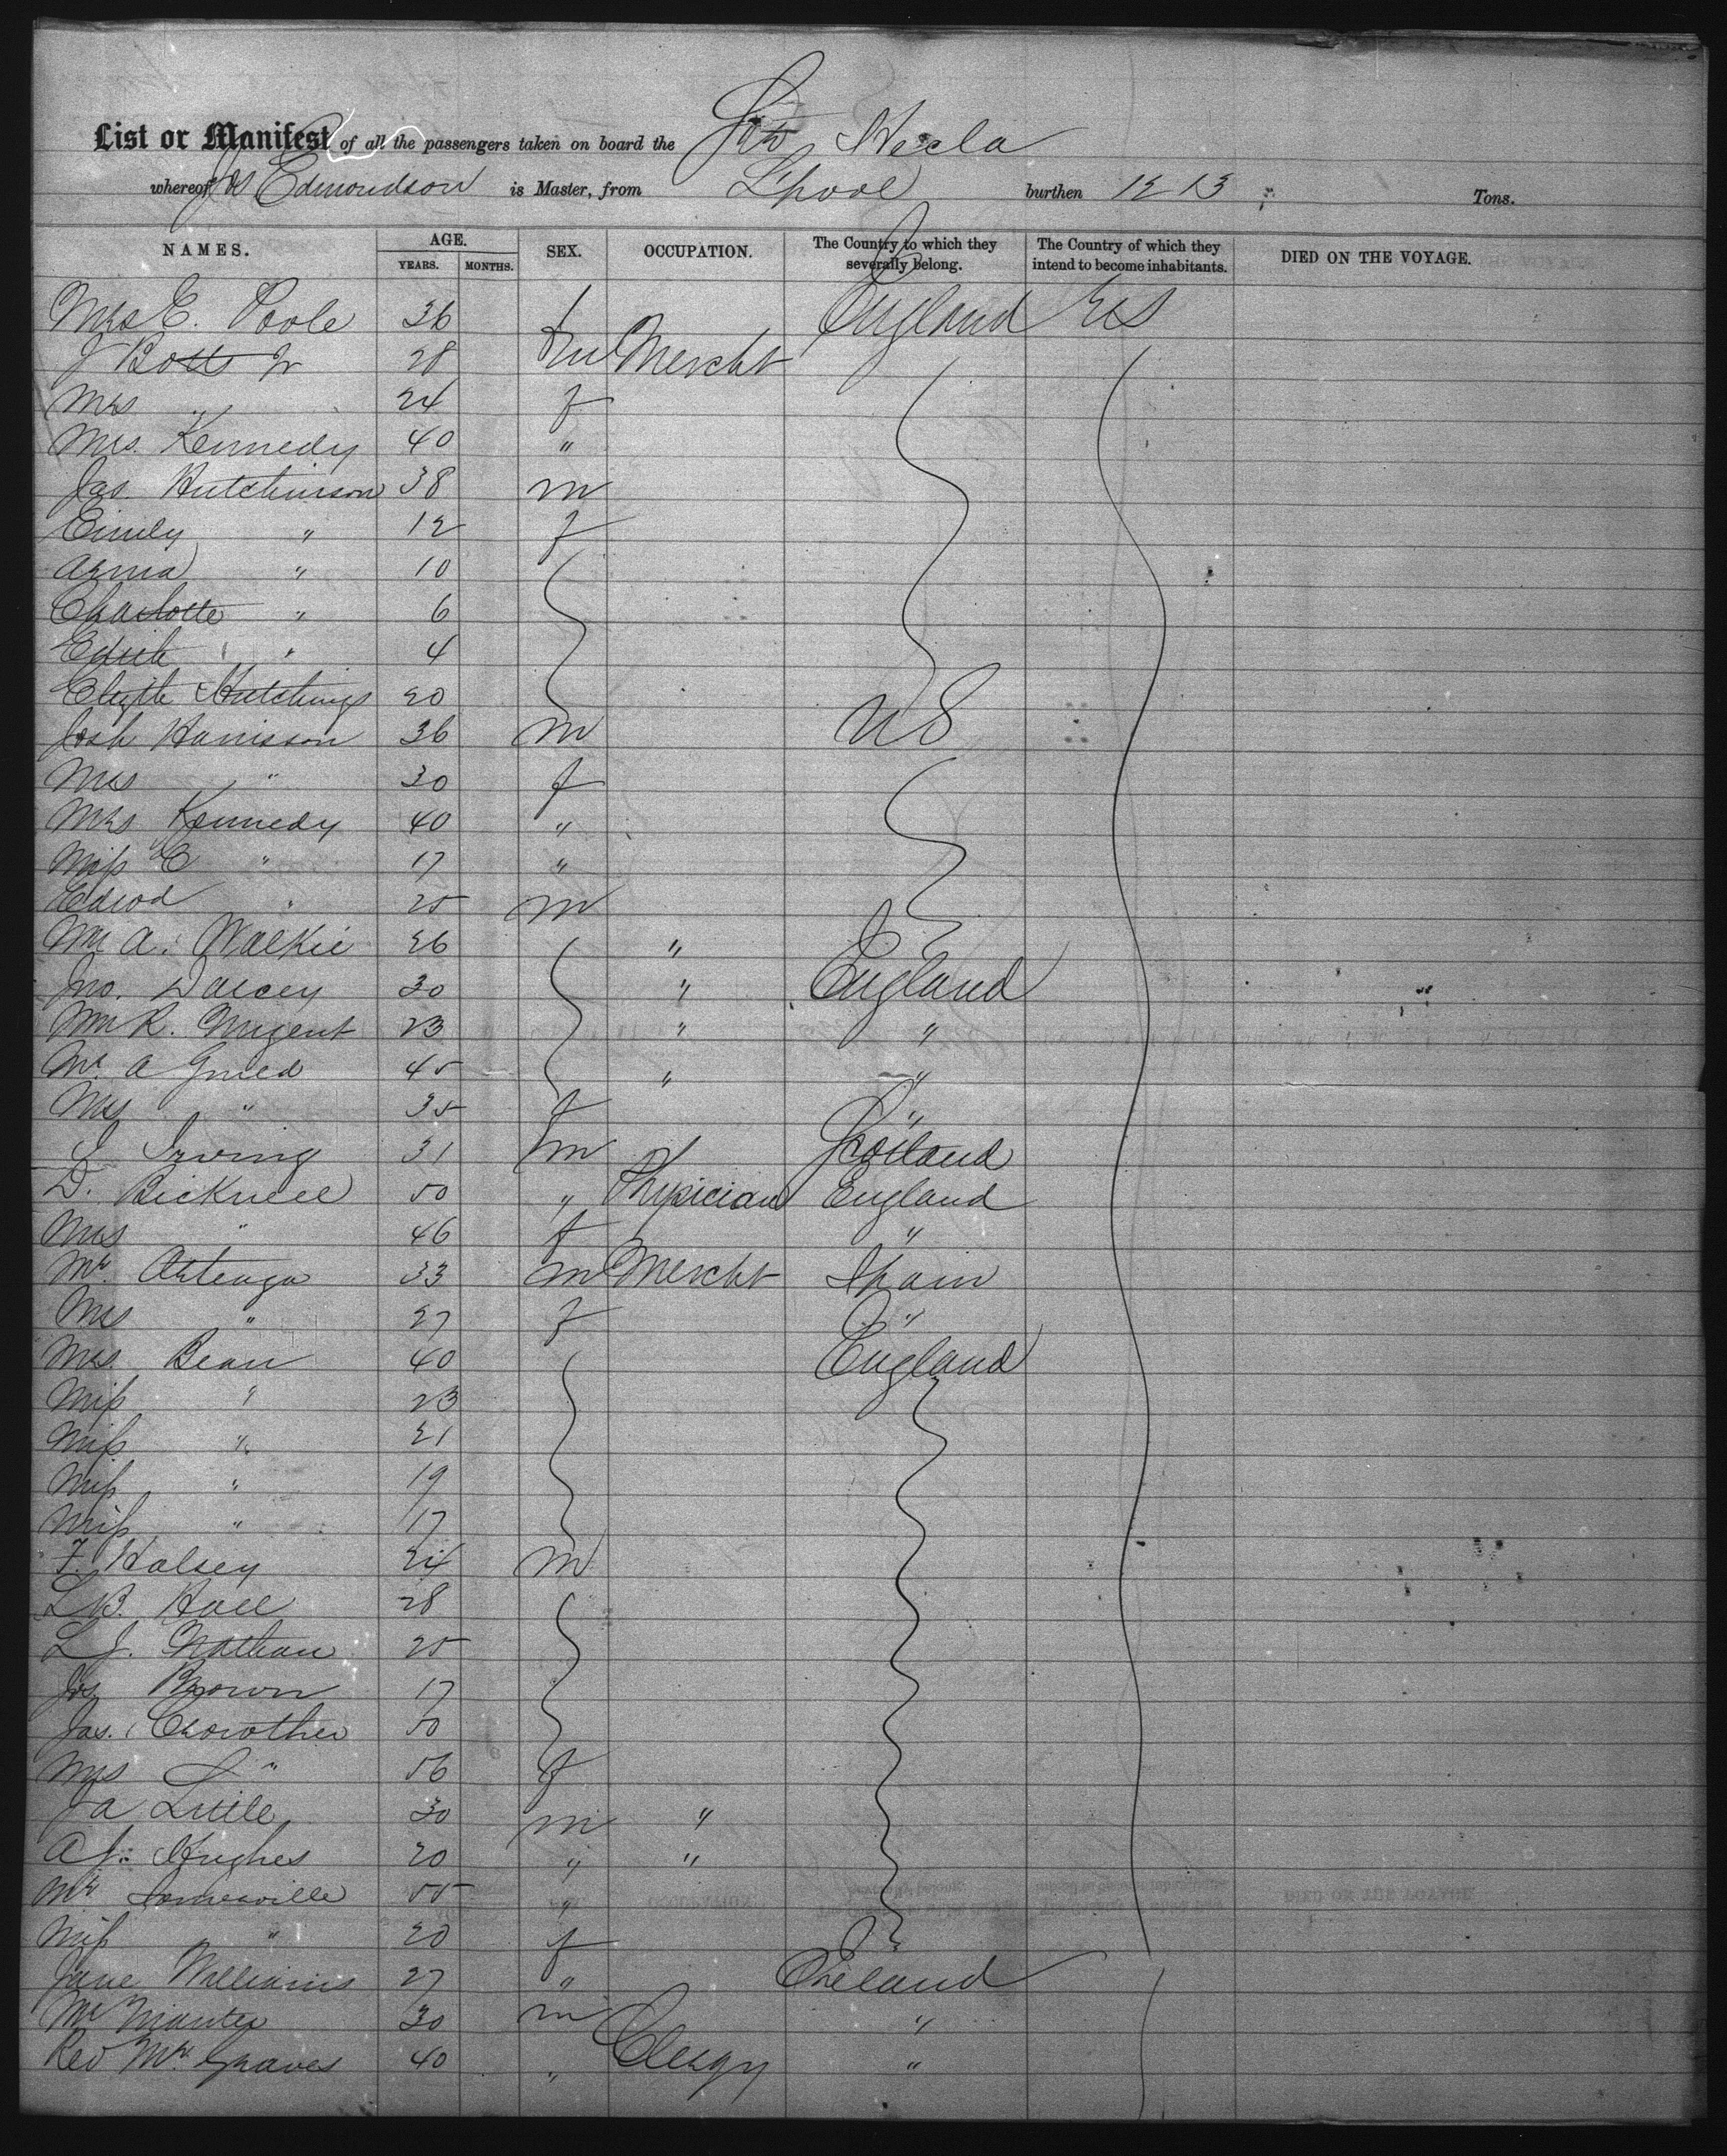 List or Manifest of all the passengers taken on board the Str Hecla
whereof Js Edmondson is Master, from L'pool burthen 1213 Tons.
NAMES. AGE. YEARS. MONTHS. SEX. OCCUPATION. The Country to which they severally belong. The Country of which they intend to become inhabitants. DIED ON THE VOYAGE.
Mrs E. Poole 36 f England US
J Botts Jr 28 m Mercht
Mrs " 24 f
Mrs. Kennedy 40 "
Jas. Hutchinson 38 m
Emily " 12 f
Anna " 10
Charlotte " 6
Edith " 4
Elizth Hutchings 20
Josh Harrison 36 m US
Mrs " 30 f
Mrs Kennedy 40 "
Miss E " 17 "
Edwd " 25 m
Wm A. Walkie 26 "
Jno. Darcey 30 " England
Wm R. Nugent 23 " "
Mr. A 45 " "
Mrs " 35 f "
Irving 31 m Scotland
D. Bicknell 50 " Physician England
Mrs " 46 f "
Mr. Arteaga 33 m Mercht Spain
Mrs " 27 f "
Mrs. Bean 40 England
Miss " 23
Miss " 21
Miss " 19
Miss " 17
F. Halsey 24 m
L B. Hall 28
L J. Nathan 25
Jos Brown 17
Jas. Crowther 50
Mrs " 56 f
Ja Little 30 m "
A J. Hughes 20 " "
Mr Somerville 55 "
Miss " 20 f
Jane Williams 27 " Ireland
Mr 30 m "
Rev Mr Graves 40 " Clergy "